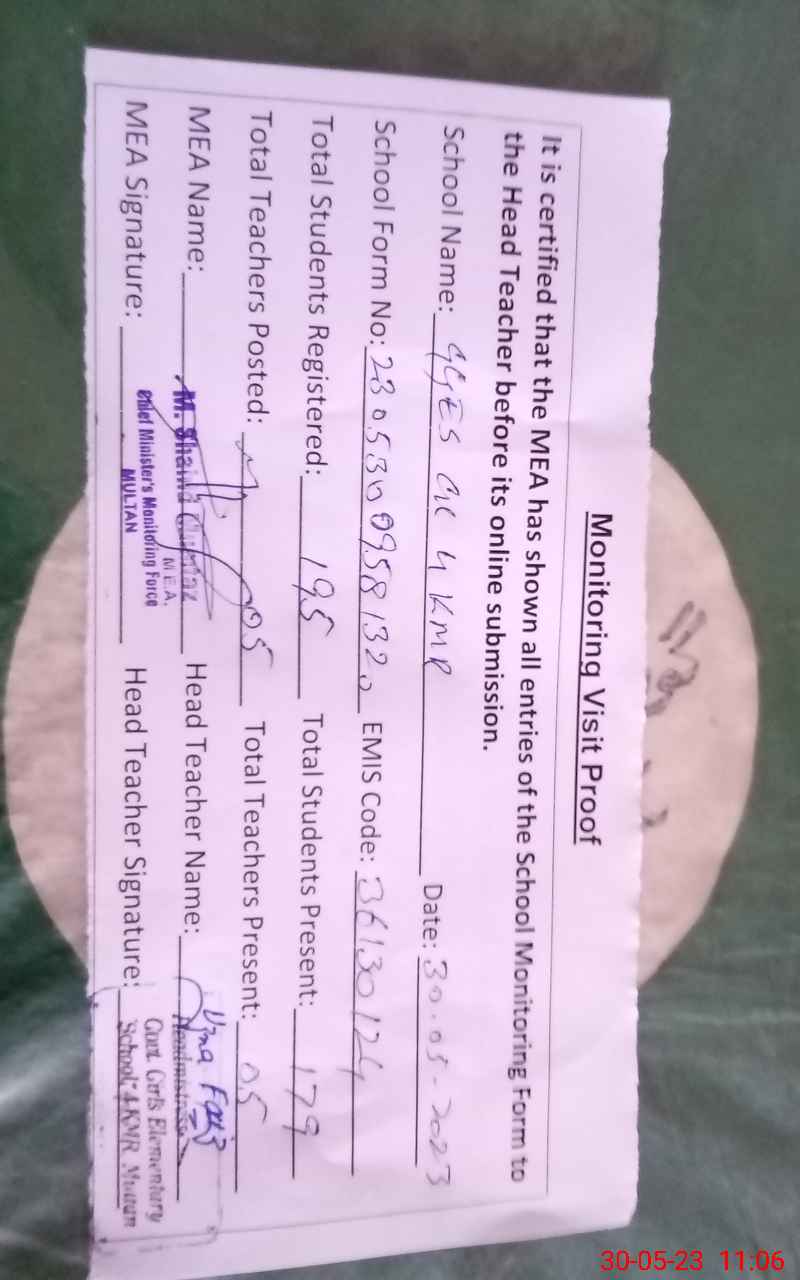 Monitoring Visit Proof
It is certified that the MEA has shown all entries of the School Monitoring Form to
the Head Teacher before its online submission.
School Name: GGES 4 KMR Date: 30.05-2023
School Form No: EMIS Code: 36130124
Total Students Registered: 195 Total Students Present: 179
Total Teachers Posted: 05 Total Teachers Present: 05
MEA Name: M. Head Teacher Name: Uzma Faiz
M.E.A. Headmistress
MEA Signature: Chief Minister's Monitoring Force Head Teacher Signature: Govt. Girls Elementary
MULTAN School, 4-KMR Multan
30-05-23 11:06